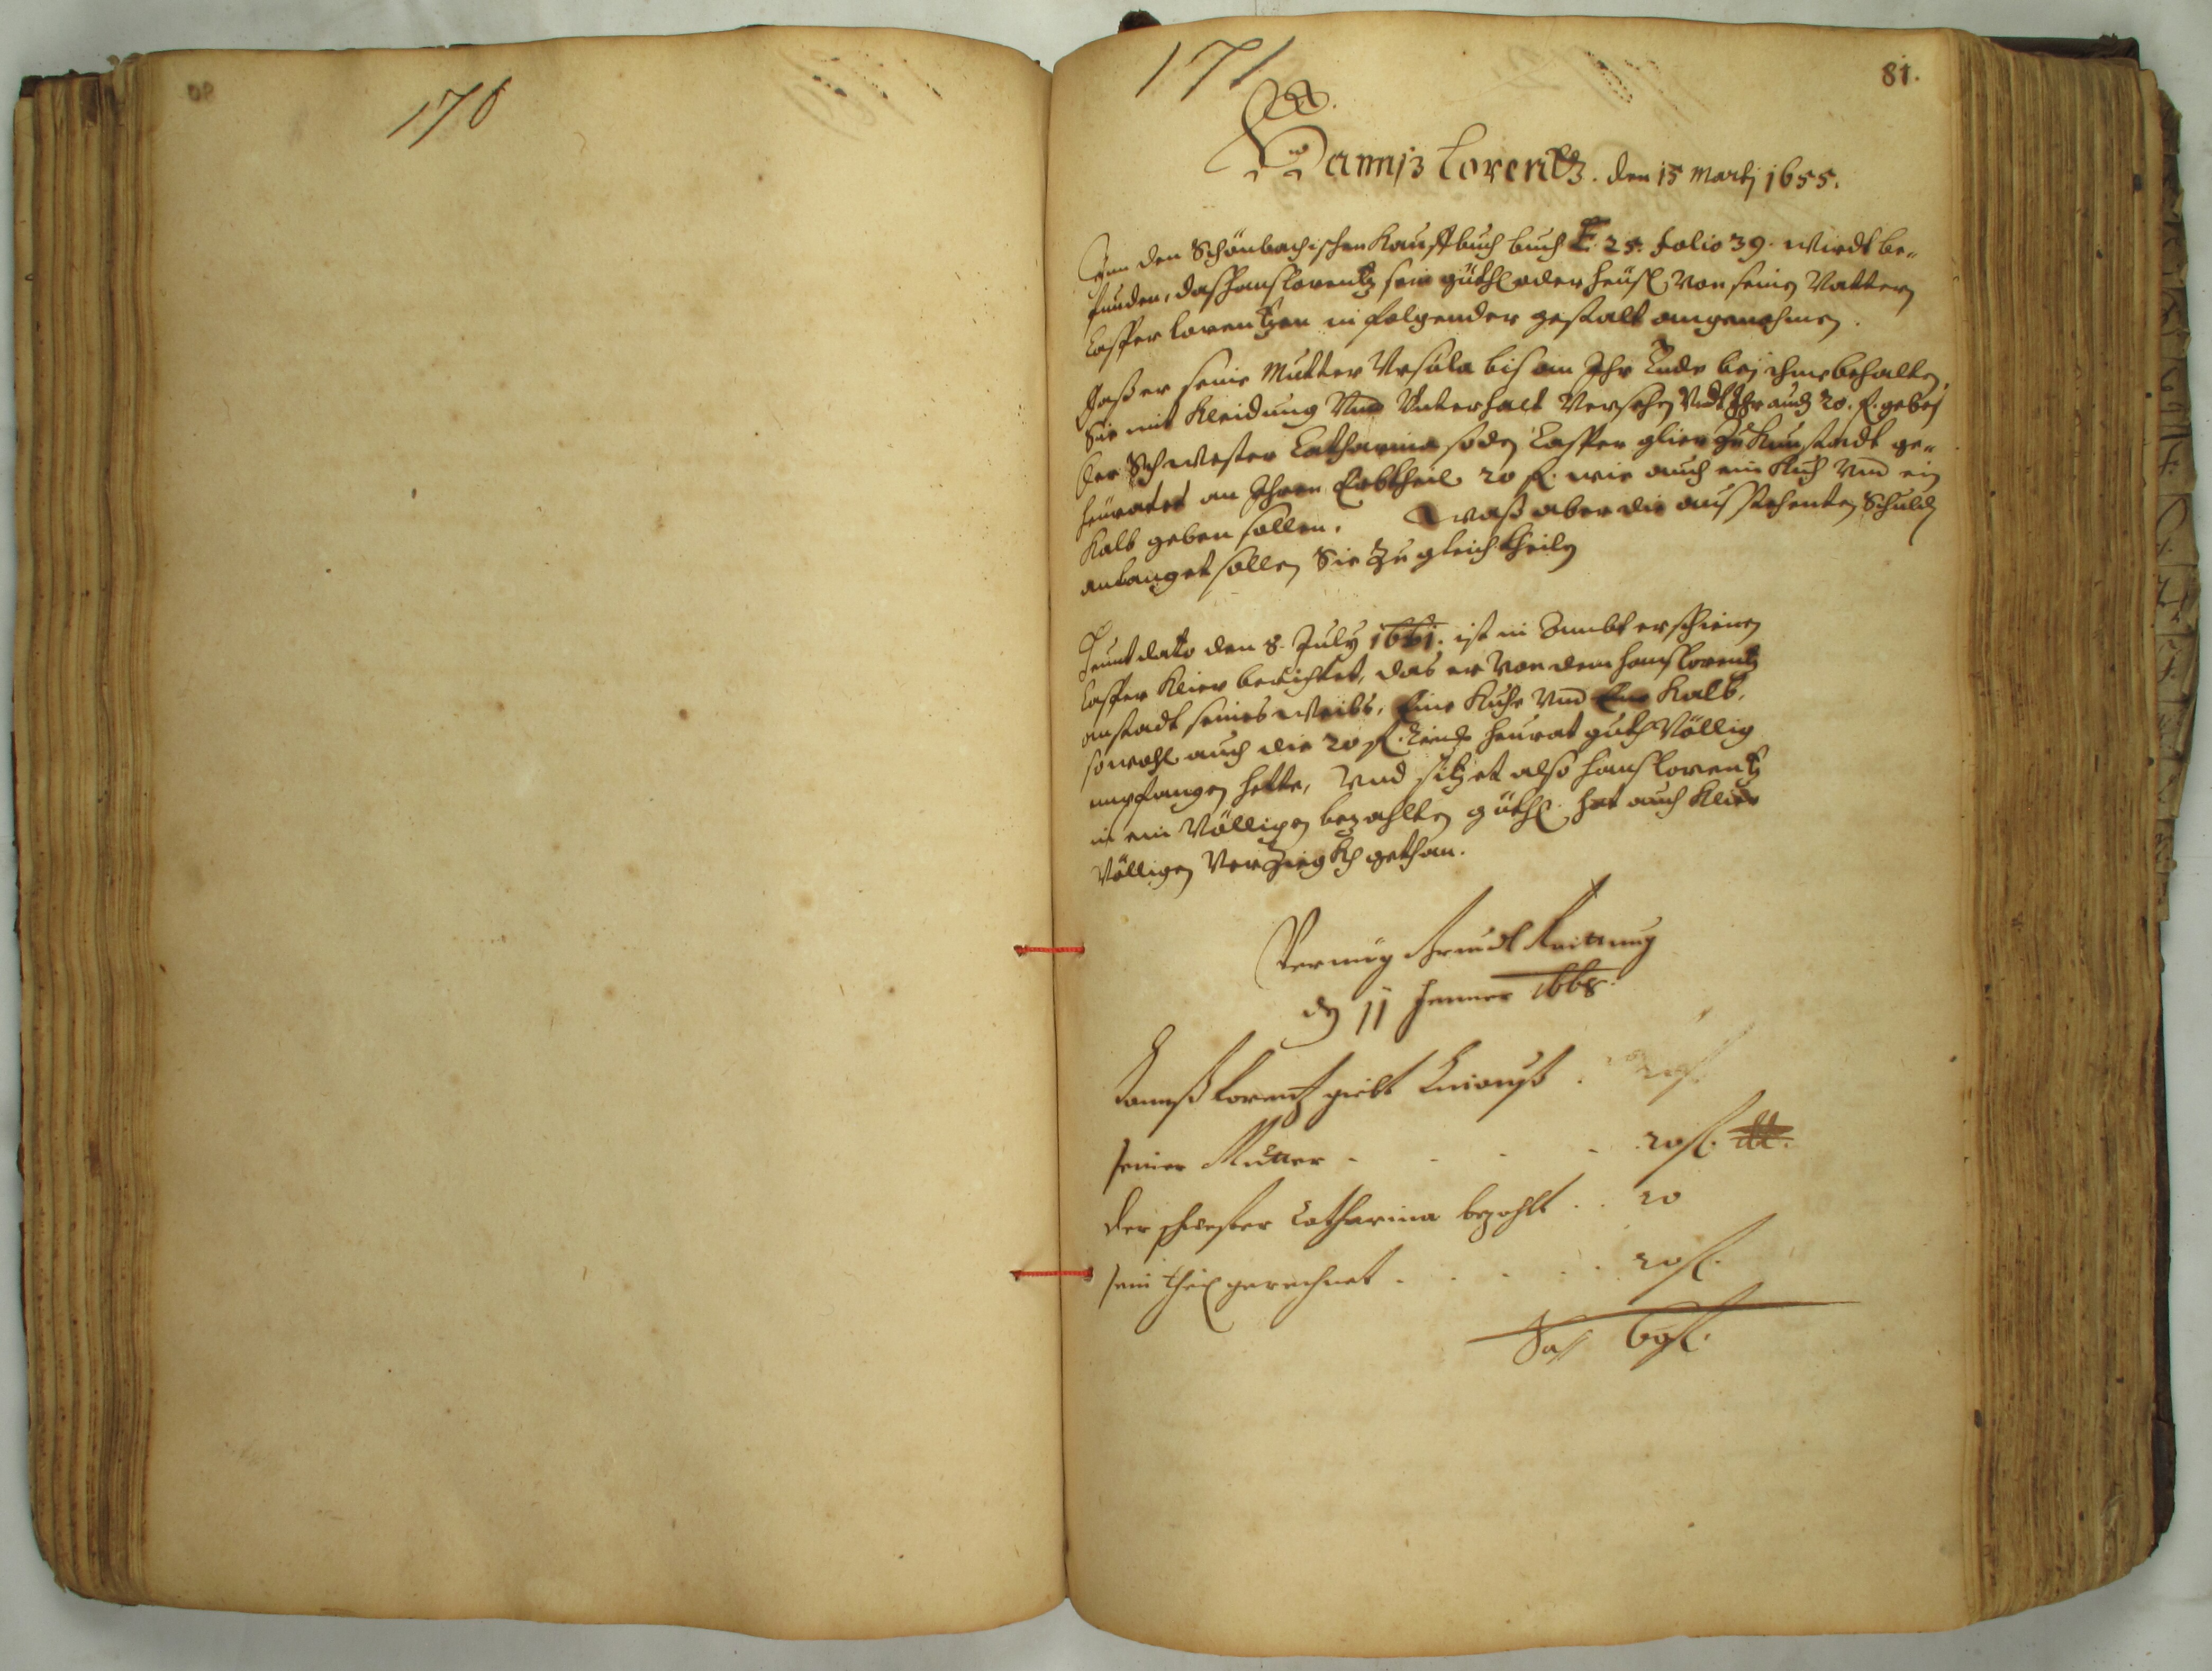 170
171
81.
Hannß Lorentz. den 15 Martj 1655.
Inn den Schönbachischen Kauffbuch buch E. 25. folio 39. wirdt be„
funden, das Hanß Lorentz sein güthl oder heüsl von seinen Vattern
Casper Lorentzen in folgender gestalt angenohmen.
Daß er seine Mutter Ursula biß an Ihr Ende bej ihme behalten,
Sie mit Kleidung Und Unterhalt Versehen Undt Ihr auch 20. fl. geben
der Schwester Catharina so den Casper Klier zu Kunstadt ge„
heüratet an Ihren Erbtheil 20 fl. wie auch ein Kuh Und ein
Kalb geben sollen. Waß aber die aus stehenten Schulden
anlanget sollen Sie zu gleich theilen
Heunt dato den 8. July 1661. ist in Ambt erschienen
Casper Klier berichtet, das er von dem Hanß Lorentz
anstadt seines Weibs, Eine Kuhe Und Ein Kalb,
sowohl auch die 20 fl. heurat guth Völlig
empfangen hette, Und sitzet also Hanß Lorentz
in ein Völligen bezahlten güthl. hat auch Klier
Völligen Verzieg gethan.
Vermüg Freundl Raittung
den 11 Jenner 1668.
Hannß Lorentz giebt hinauß .
seiner Mutter - - - - 20 fl.
der schwester Catharina bezahlt . . 20
sein theil gerechnet . . . . . 20 fl.
Sa 60 fl.